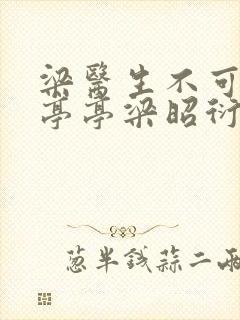 梁醫生不可
亭亭梁昭衍
葱半錢蒜二兩